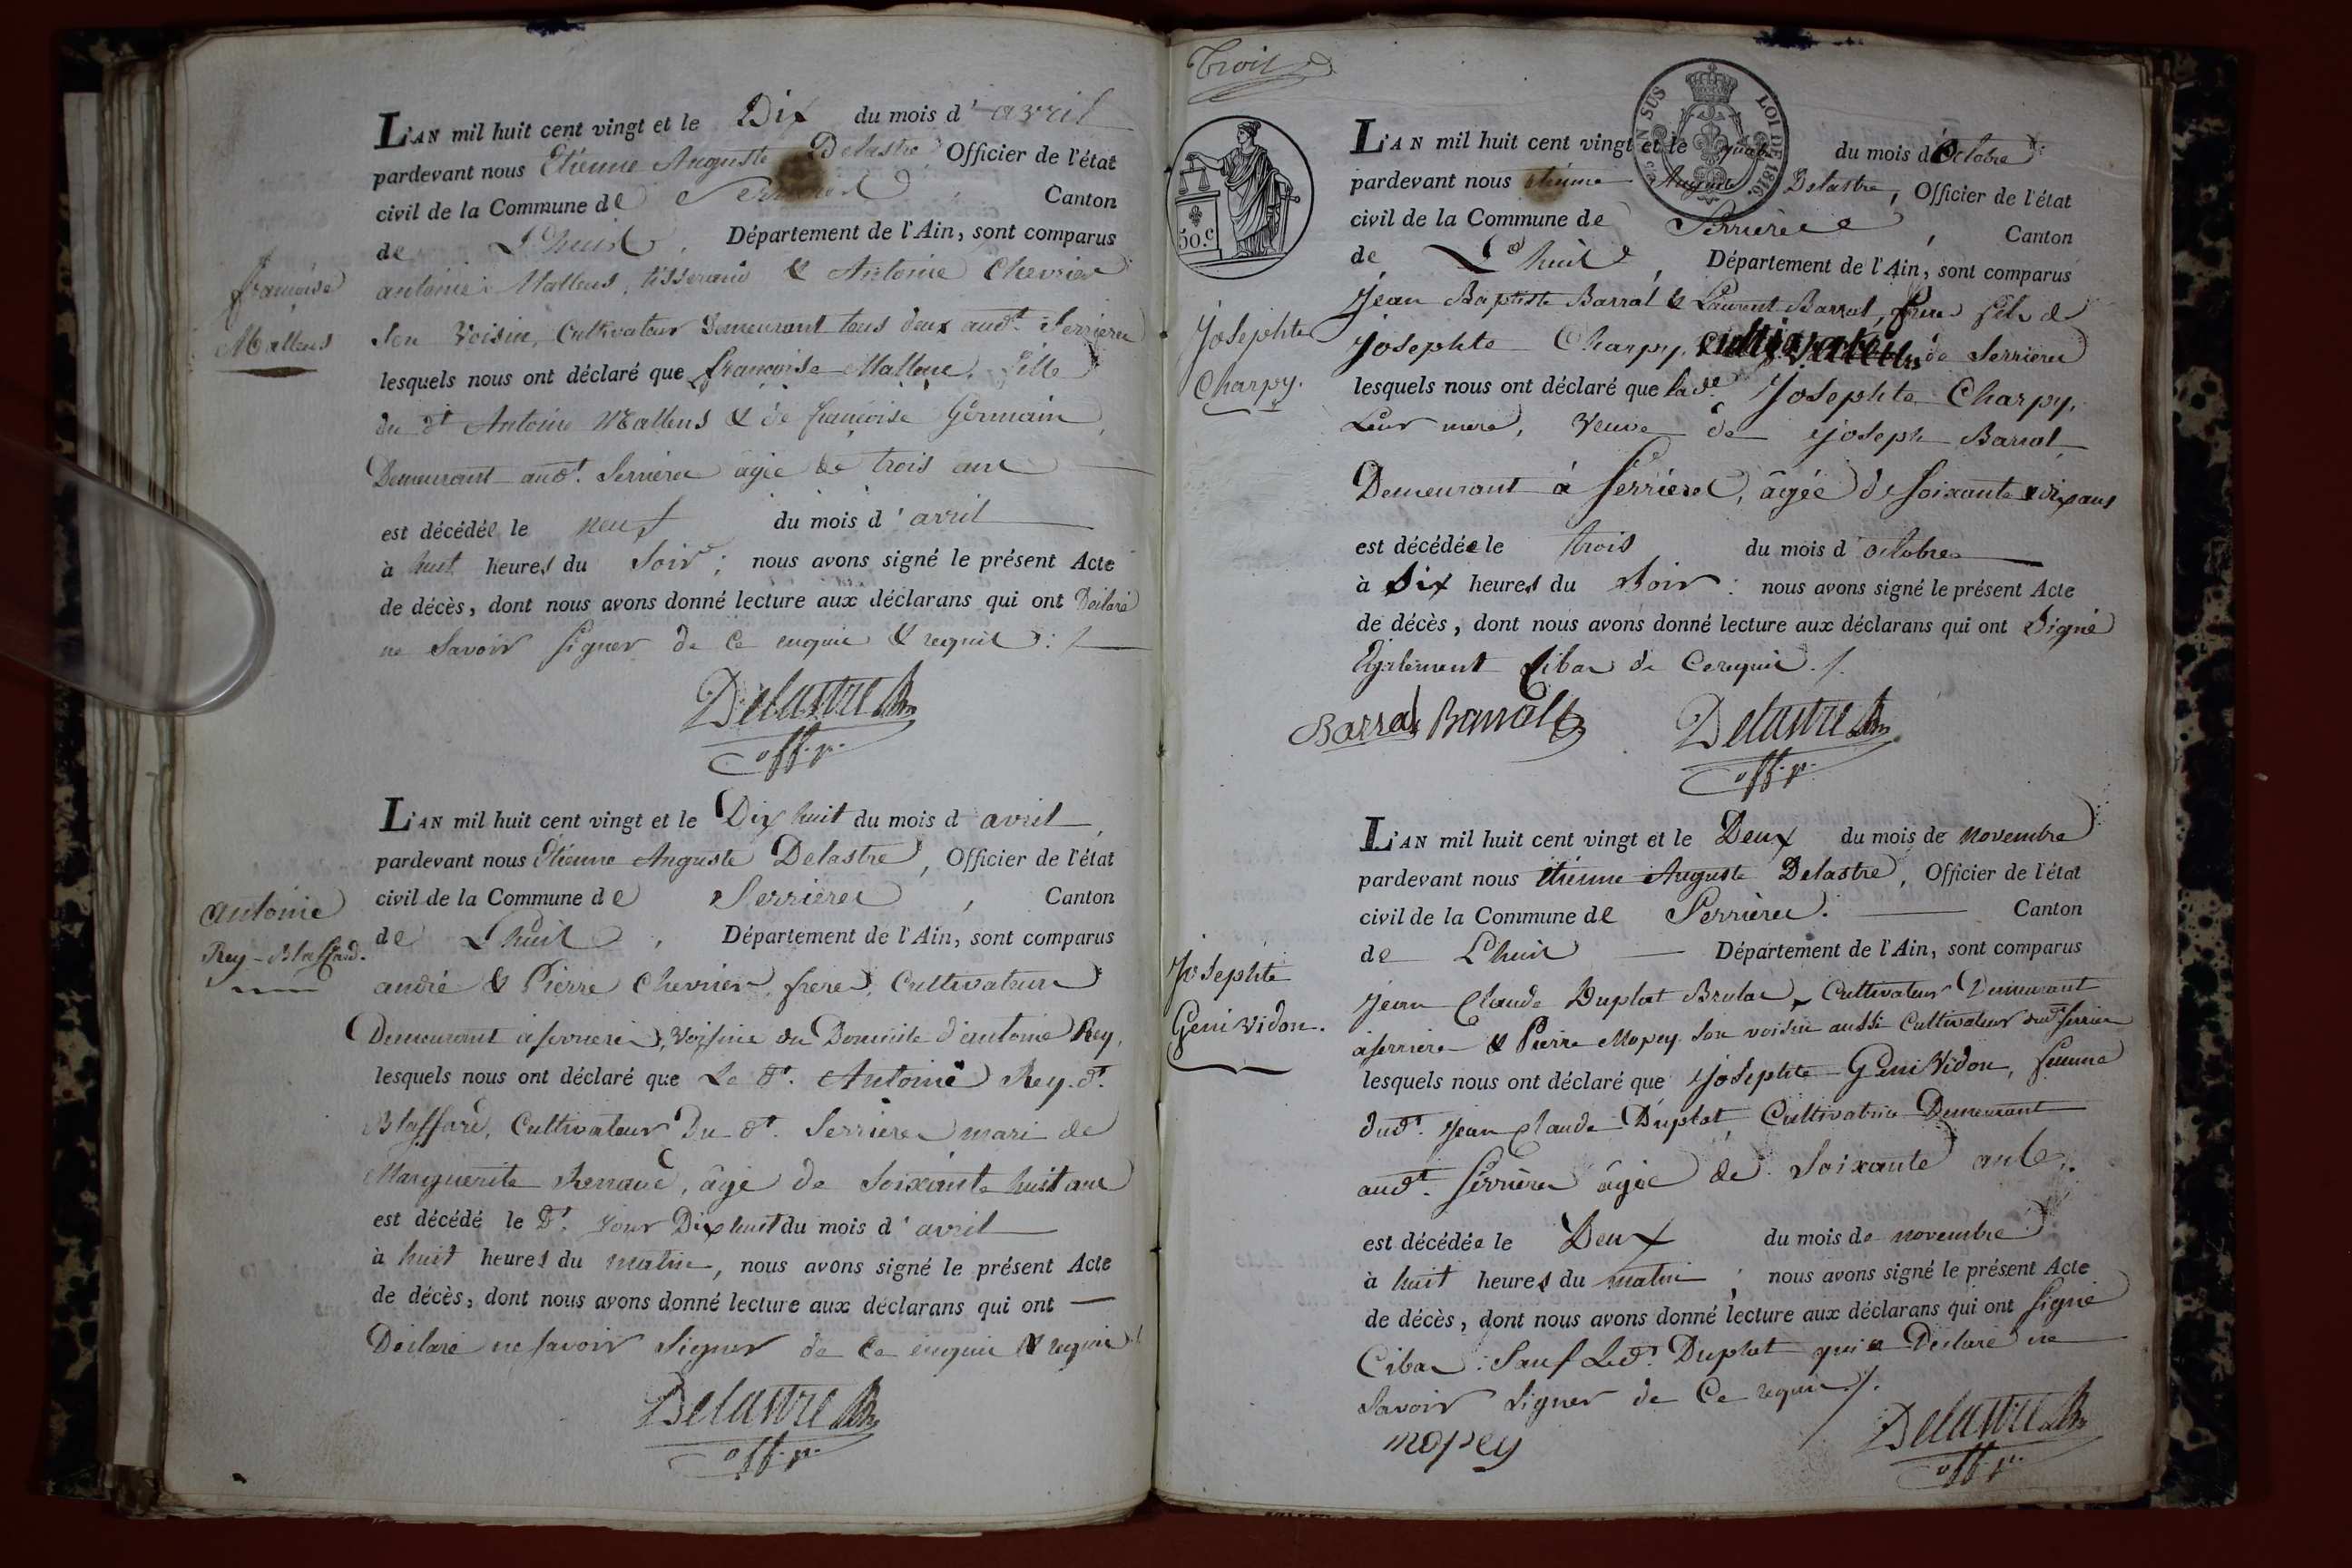 françoise
Mallens
L'AN mil huit cent vingt et le Dix du mois d'avril
pardevant nous Etienne Auguste Delastre, Officier de l'état
civil de la Commune de Serrieres, Canton
de L'huis, Département de l'Ain, sont comparus
antoine Mallens, tisserand & Antoine Chevrier
son Voisin, Cultivateur Demeurant tous deux audt. Serrieres
lesquels nous ont déclaré que françoise Mallens, fille
du dt Antoine Mallens & de françoise Germain,
Demeurant audt. Serrieres âgée de trois ans
est décédée le neuf du mois d'avril
à huit heures du Soir; nous avons signé le présent Acte
de décès, dont nous avons donné lecture aux déclarans qui ont Déclaré
ne Savoir signer de ce enquis & requis ./.
Delastre
off. p.
antoine
Rey-Blaffard.
L'AN mil huit cent vingt et le Dix huit du mois d avril,
pardevant nous Etienne Auguste Delastre, Officier de l'état
civil de la Commune de Serrieres, Canton
de L'huis, Département de l'Ain, sont comparus
andré & Pierre Chevrier, freres, Cultivateurs
Demeurant à serrieres, Voisins du Domicile d'antoine Rey,
lesquels nous ont déclaré que Le dt. Antoine Rey. dt.
Blaffard, Cultivateur du dt. Serrieres mari de
Marguerite Renaud, âgé de Soixante huit ans
est décédé le dt. jour Dix huit du mois d'avril
à huit heures du matin, nous avons signé le présent Acte
de décès, dont nous avons donné lecture aux déclarans qui ont
Déclaré ne savoir signer de ce enquis & requis
Delastre
off. p.
Trois
50.c
SUS
LOI DE 1816.
Josephte
Charpy.
L'AN mil huit cent vingt et le quatre du mois d'Octobre
pardevant nous étienne Auguste Delastre, Officier de l'état
civil de la Commune de Serrieres, Canton
de L'huis, Département de l'Ain, sont comparus
Jean Baptiste Barral & Laurent Barral, frères fils de
Josephte Charpy, cultivateurs de Serrieres
lesquels nous ont déclaré que lade. Josephte Charpy,
Leur mere, Veuve de joseph Barral
Demeurant à Serrieres, âgée de soixante & dix ans
est décédée le trois du mois d'octobre
à Six heures du Soir: nous avons signé le présent Acte
de décès, dont nous avons donné lecture aux déclarans qui ont Signé
Egalement Cibas de Ce requis ./.
Barral Barral
Delastre
off. p.
Josephte
Geni Vidon.
L'AN mil huit cent vingt et le Deux du mois de novembre
pardevant nous étienne Auguste Delastre, Officier de l'état
civil de la Commune de Serrieres. Canton
de L'huis Département de l'Ain, sont comparus
Jean Claude Duplat Brulas, Cultivateur Demeurant
à serrieres & Pierre Mopey son voisin aussi Cultivateur dudt serrieres
lesquels nous ont déclaré que josephte Geni Vidon, femme
dudt. Jean Claude Duplat Cultivatrice Demeurant
audt. serrieres âgée de Soixante ans
est décédée le Deux du mois de novembre
à huit heures du matin; nous avons signé le présent Acte
de décès, dont nous avons donné lecture aux déclarans qui ont signé
Cibas. Sauf Ledt. Duplat qui a Déclaré ne
Savoir signer de Ce requis ./.
mopey
Delastre
off. p.